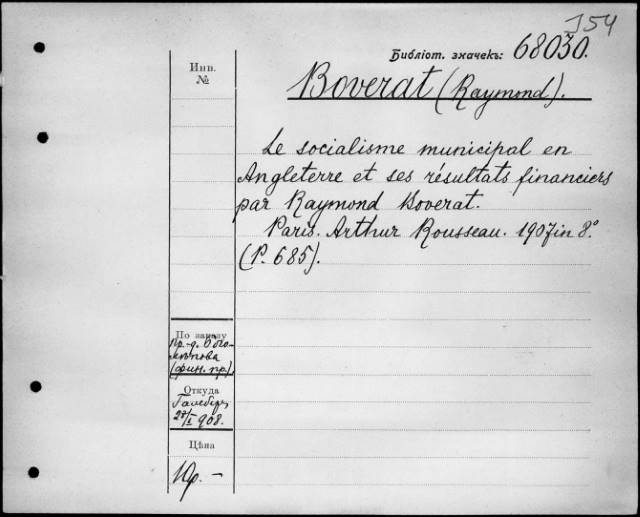 J54
Библіот. значекъ: 68030.
Инв.
№
Boverat (Raymond).
Le socialisme municipal en
Angleterre et ses résultats financiers
par Raymond Boverat.
Paris. Arthur Rousseau. 1907 in 8°.
(P. 685).
По заказу
пр.-д.
(фин. пр.)
Откуда
27/I 908.
Цѣна
10р. –